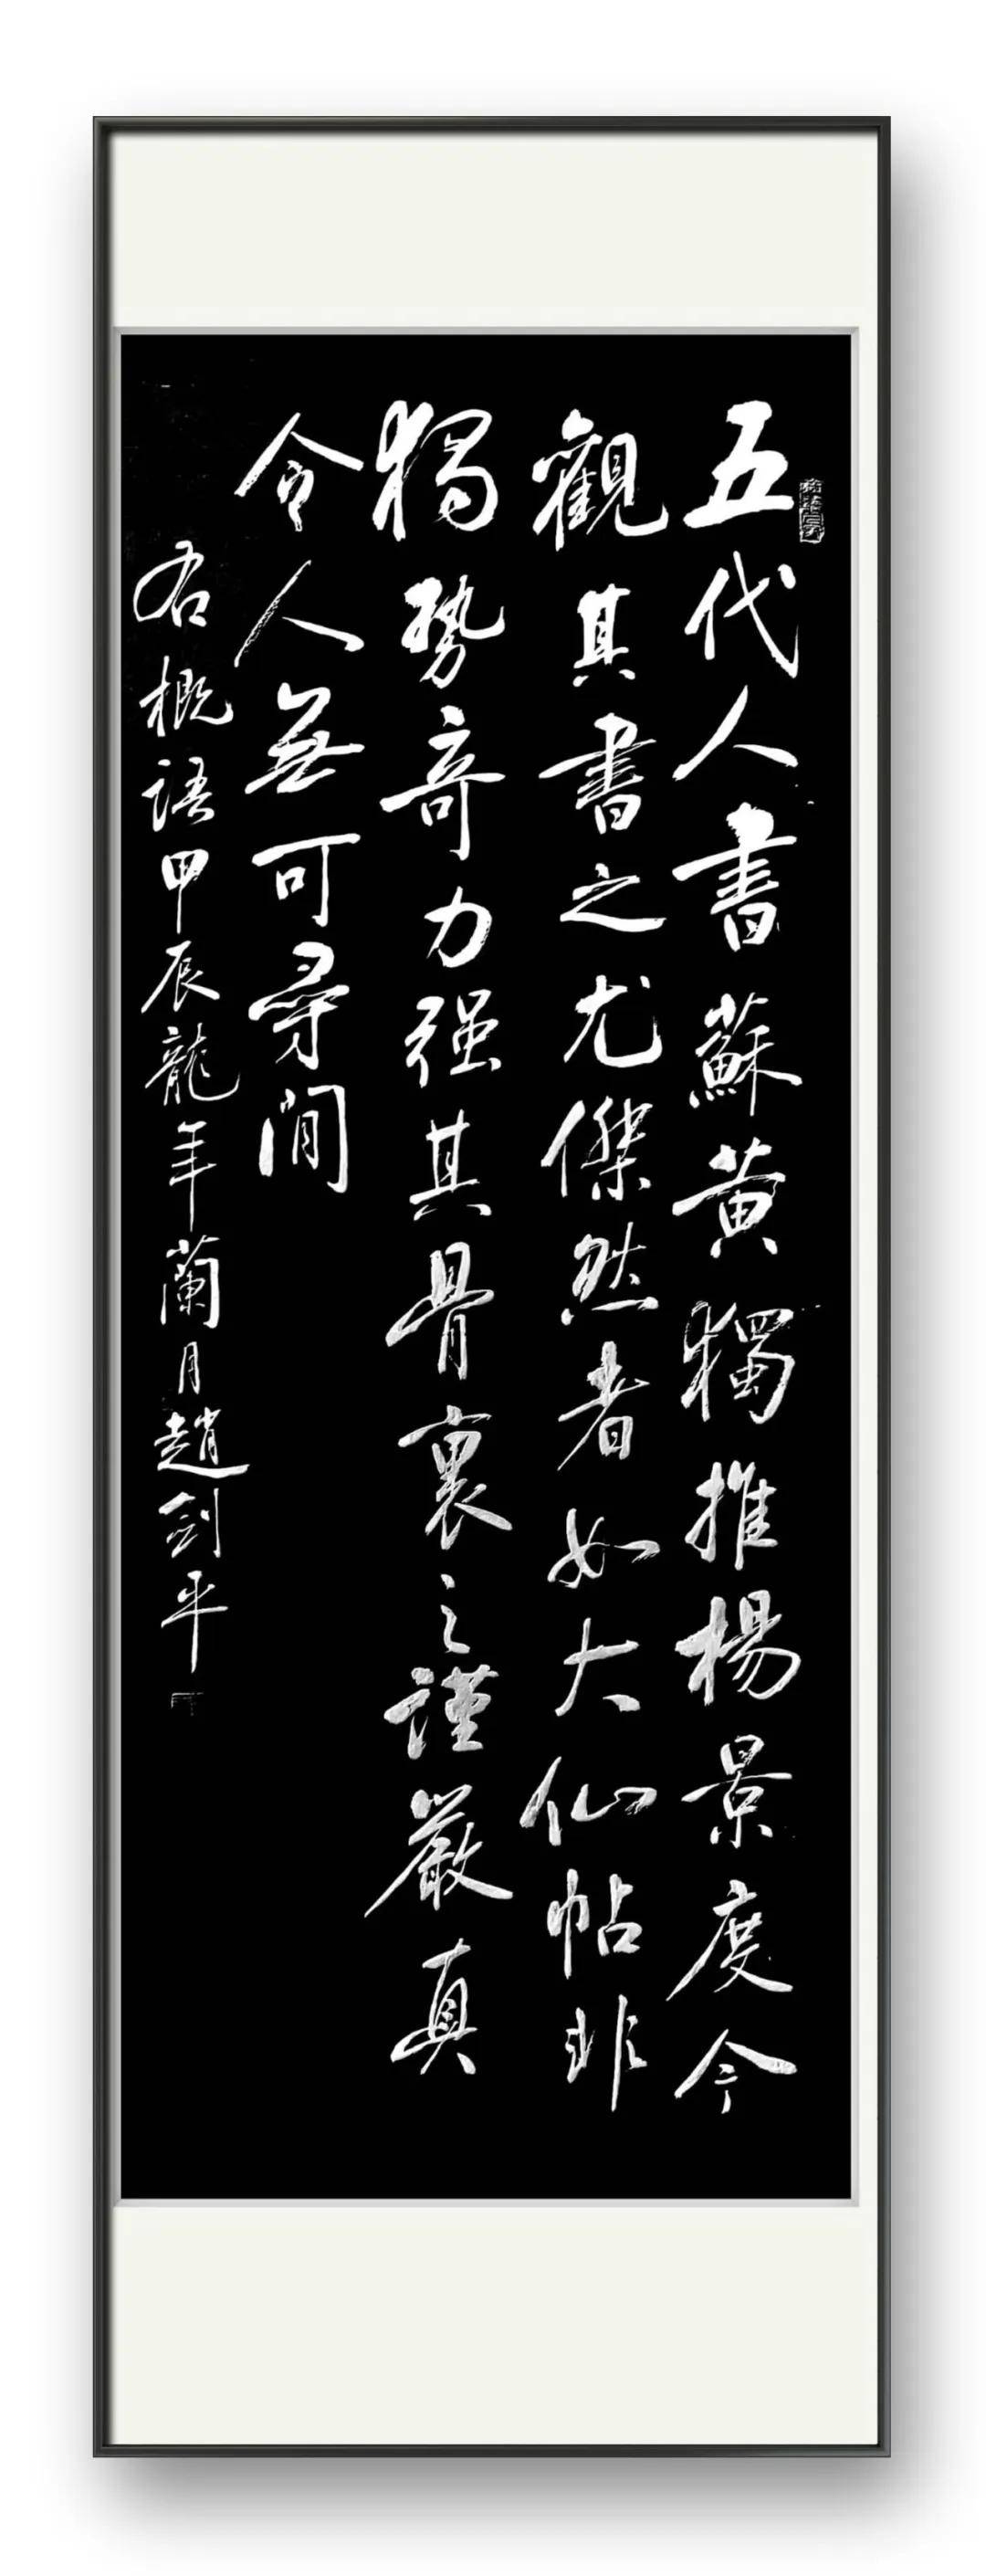 五代人書蘇黄獨推楊景度今
觀其書之尤傑然者如大仙帖非
獨勢奇力强其骨裏之謹嚴真
令人無可尋間
右概語甲辰龍年蘭月趙劍平